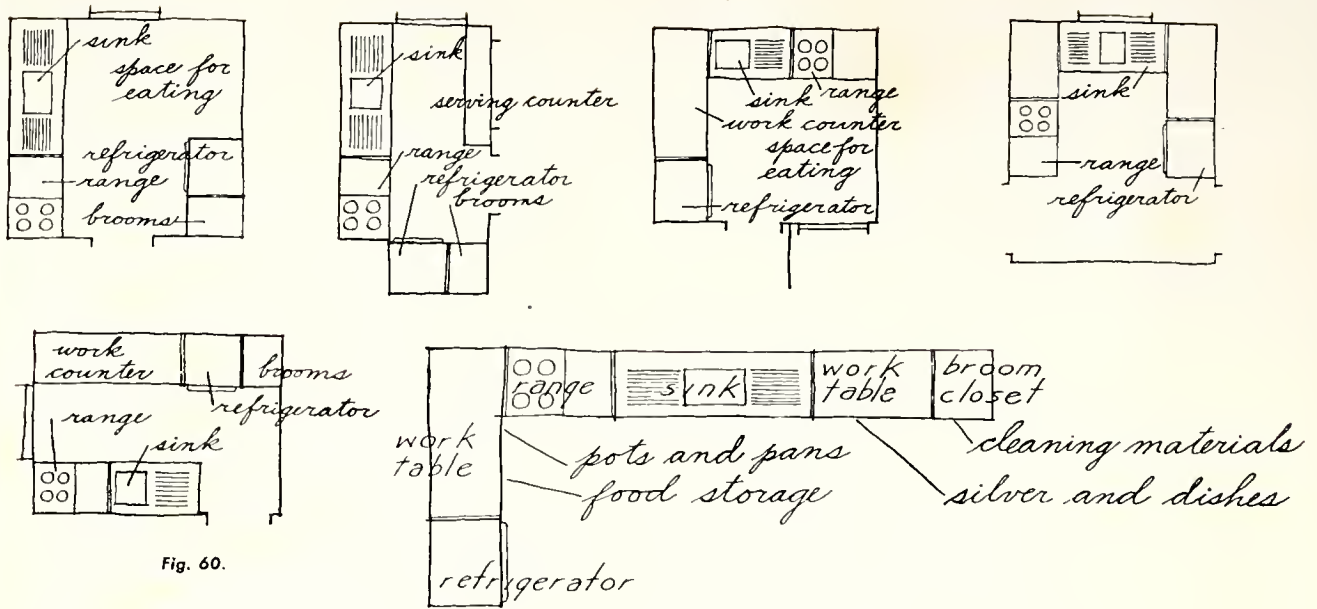 sink
space for
eating
refrigerator
range
brooms
sink
serving counter
range
refrigerator
brooms
sink range
work counter
space for
eating
refrigerator
sink
range
refrigerator
work
counter
brooms
refrigerator
range
sink
range
sink
work
table
broom
closet
work
table
pots and pans
food storage
cleaning materials
silver and dishes
refrigerator
Fig. 60.